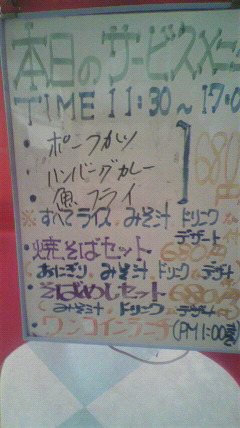 本日のサービスメニ
TIME 11:30~17:0
・ポークカツ
・ハンバーグカレー
・魚フライ
680円
※すべてライス、みそ汁 ドリンク
デザート
・焼そばセット 680円
(おにぎり、みそ汁、ドリンク
・そばめしセット 680円
(みそ汁、ドリンク
・ワンコインランチ(PM1:00迄